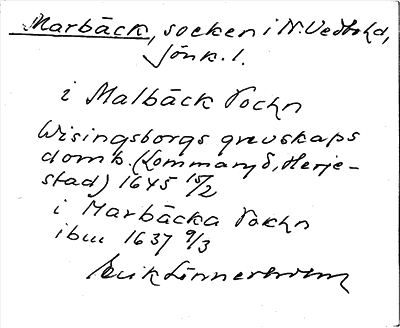 Marbäck, socken i N. Vedbo hd,
Jönk. l.
i Malbäck Sochn
Wisingsborgs grevskaps
domb. (Commang S, Herje-
stad) 1645 15/2
i Marbäcka Sokhn
ibm 1637 9/3
Erik Linnerholm